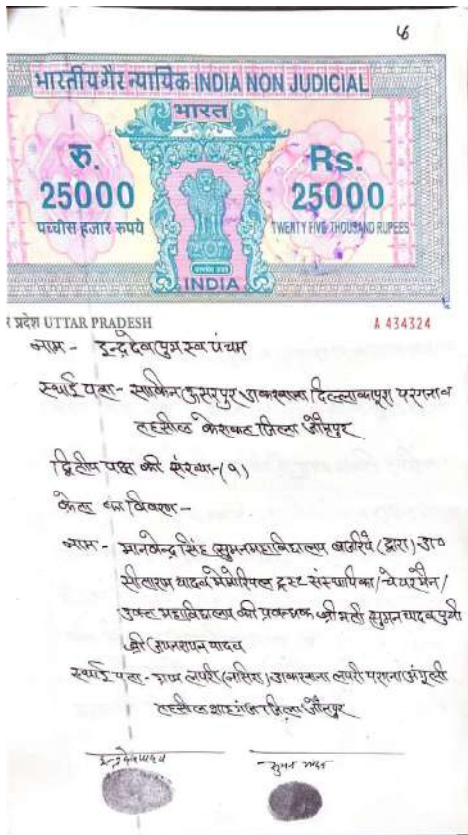 भारतीय गैर न्यायिक INDIA NON JUDICIAL
भारत
रु.
25000
पच्चीस हजार रुपये
Rs.
25000
TWENTY FIVE THOUSAND RUPEES
INDIA
प्रदेश UTTAR PRADESH
A 434324
नाम - इन्द्रदेव पुत्र स्व पंचम
स्थाई पता - साकिन डाकखाना परगना व
तहसील केराकत जिला जौनपुर
द्वितीय पक्ष की संख्या-(१)
क्रेता का विवरण -
नाम - मानवेन्द्र सिंह सुमन महाविद्यालय (द्वारा) डा०
सीताराम यादव मेमोरियल ट्रस्ट संस्थापिका/चेयरमैन/
उक्त महाविद्यालय की प्रबन्धक श्रीमती सुमन यादव पुत्री
श्री यादव
स्थाई पता - ग्राम लपरी डाकखाना लपरी परगना अंगुली
तहसील शाहगंज जिला जौनपुर
सुमन यादव